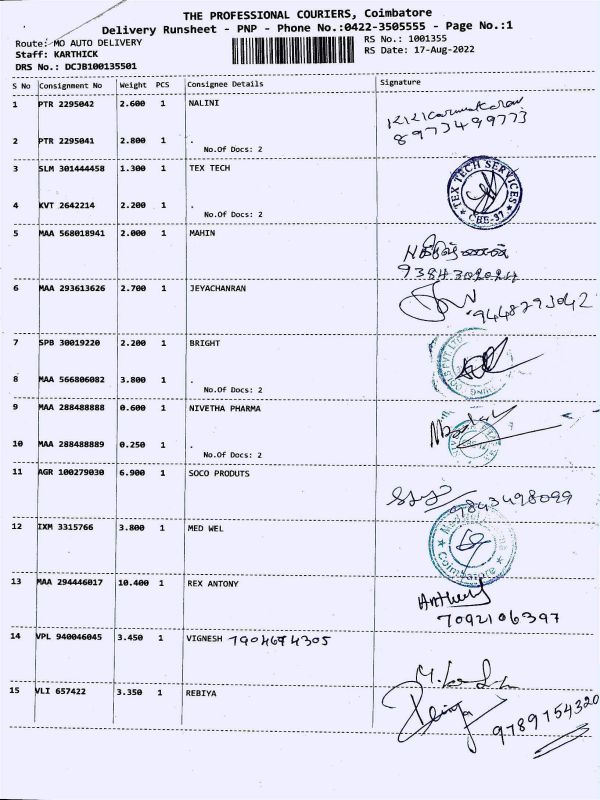 THE PROFESSIONAL COURIERS, Coimbatore
Delivery Runsheet - PNP - Phone No.:0422-3505555 - Page No.:1
Route: MO AUTO DELIVERY
Staff: KARTHICK
DRS No.: DCJB100135501
RS No.: 1001355
RS Date: 17-Aug-2022
S No Consignment No Weight PCS Consignee Details Signature
1 PTR 2295042 2.600 1 NALINI
8973499773
2 PTR 2295041 2.800 1 .
No.Of Docs: 2
3 SLM 301444458 1.300 1 TEX TECH
TEX TECH SERVICES
CBE-37
4 KVT 2642214 2.200 1 .
No.Of Docs: 2
5 MAA 568018941 2.000 1 MAHIN
6 MAA 293613626 2.700 1 JEYACHANRAN
7 SPB 30019220 2.200 1 BRIGHT
8 MAA 566806082 3.800 1 .
No.Of Docs: 2
9 MAA 288488888 0.600 1 NIVETHA PHARMA
10 MAA 288488889 0.250 1 .
No.Of Docs: 2
11 AGR 100279030 6.900 1 SOCO PRODUTS
9843498099
12 IXM 3315766 3.800 1 MED WEL
Coimbatore
13 MAA 294446017 10.400 1 REX ANTONY
Anthony
7092106397
14 VPL 940046045 3.450 1 VIGNESH 7904674305
15 VLI 657422 3.350 1 REBIYA
9789754320